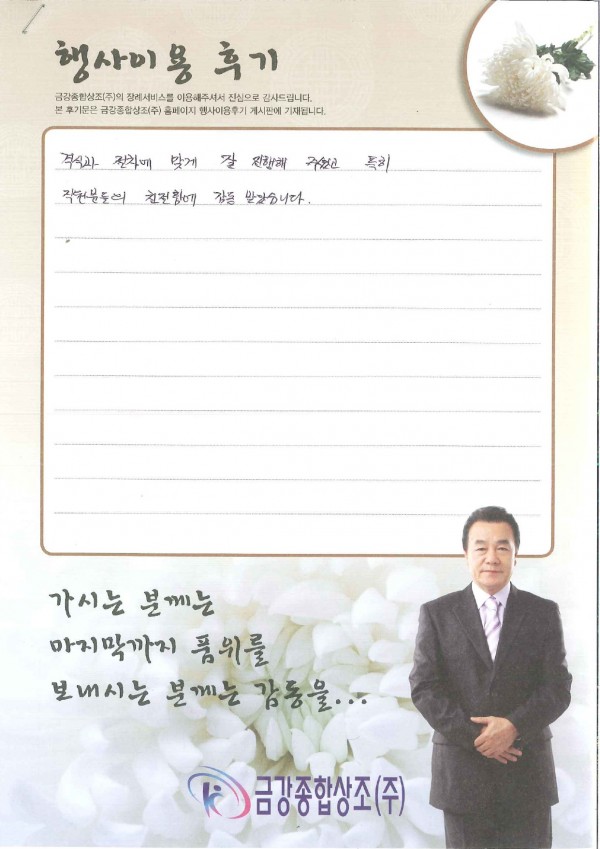 행사이용 후기
금강종합상조(주)의 장례서비스를 이용해주셔서 진심으로 감사드립니다.
본 후기문은 금강종합상조(주) 홈페이지 행사이용후기 게시판에 기재됩니다.
격식과 절차에 맞게 잘 진행해 주셨고 특히
직원분들의 친절함에 감동 받았습니다.
가시는 분께는
마지막까지 품위를
보내시는 분께는 감동을...
금강종합상조(주)